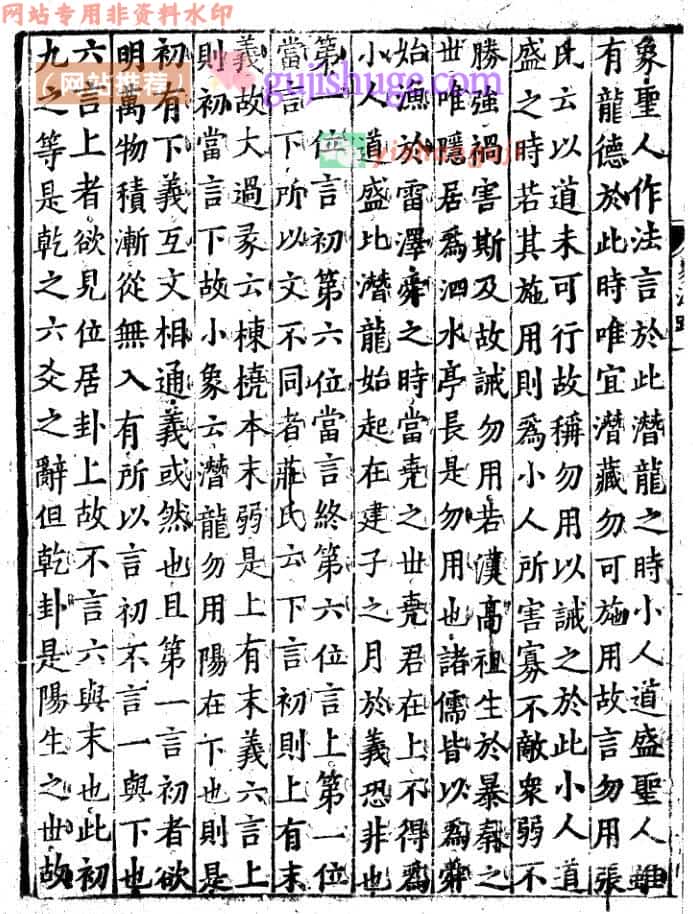 网站专用非资料水印
(网站推荐)
gujishuge.com
yishuguji
象聖人作法言於此潛龍之時小人道盛聖人雖
有龍德於此時唯宜潛藏勿可施用故言勿用張
氏云以道未可行故稱勿用以誡之於此小人道
盛之時若其施用則爲小人所害寡不敵衆弱不
勝強禍害斯及故誡勿用若漢高祖生於暴秦之
世唯隱居爲泗水亭長是勿用也諸儒皆以爲舜
始漁於雷澤舜之時當堯之世堯君在上不得爲
小人道盛此潛龍始起在建子之月於義恐非也
第一位言初第六位當言終第六位言上第一位
當言下所以文不同者莊氏云下言初則上有末
義故大過彖云棟橈本末弱是上有末義六言上
則初當言下故小象云潛龍勿用陽在下也則是
初有下義互文相通義或然也且第一言初者欲
明萬物積漸從無入有所以言初不言一與下也
六言上者欲見位居卦上故不言六與末也此初
九之等是乾之六爻之辭但乾卦是陽生之世故